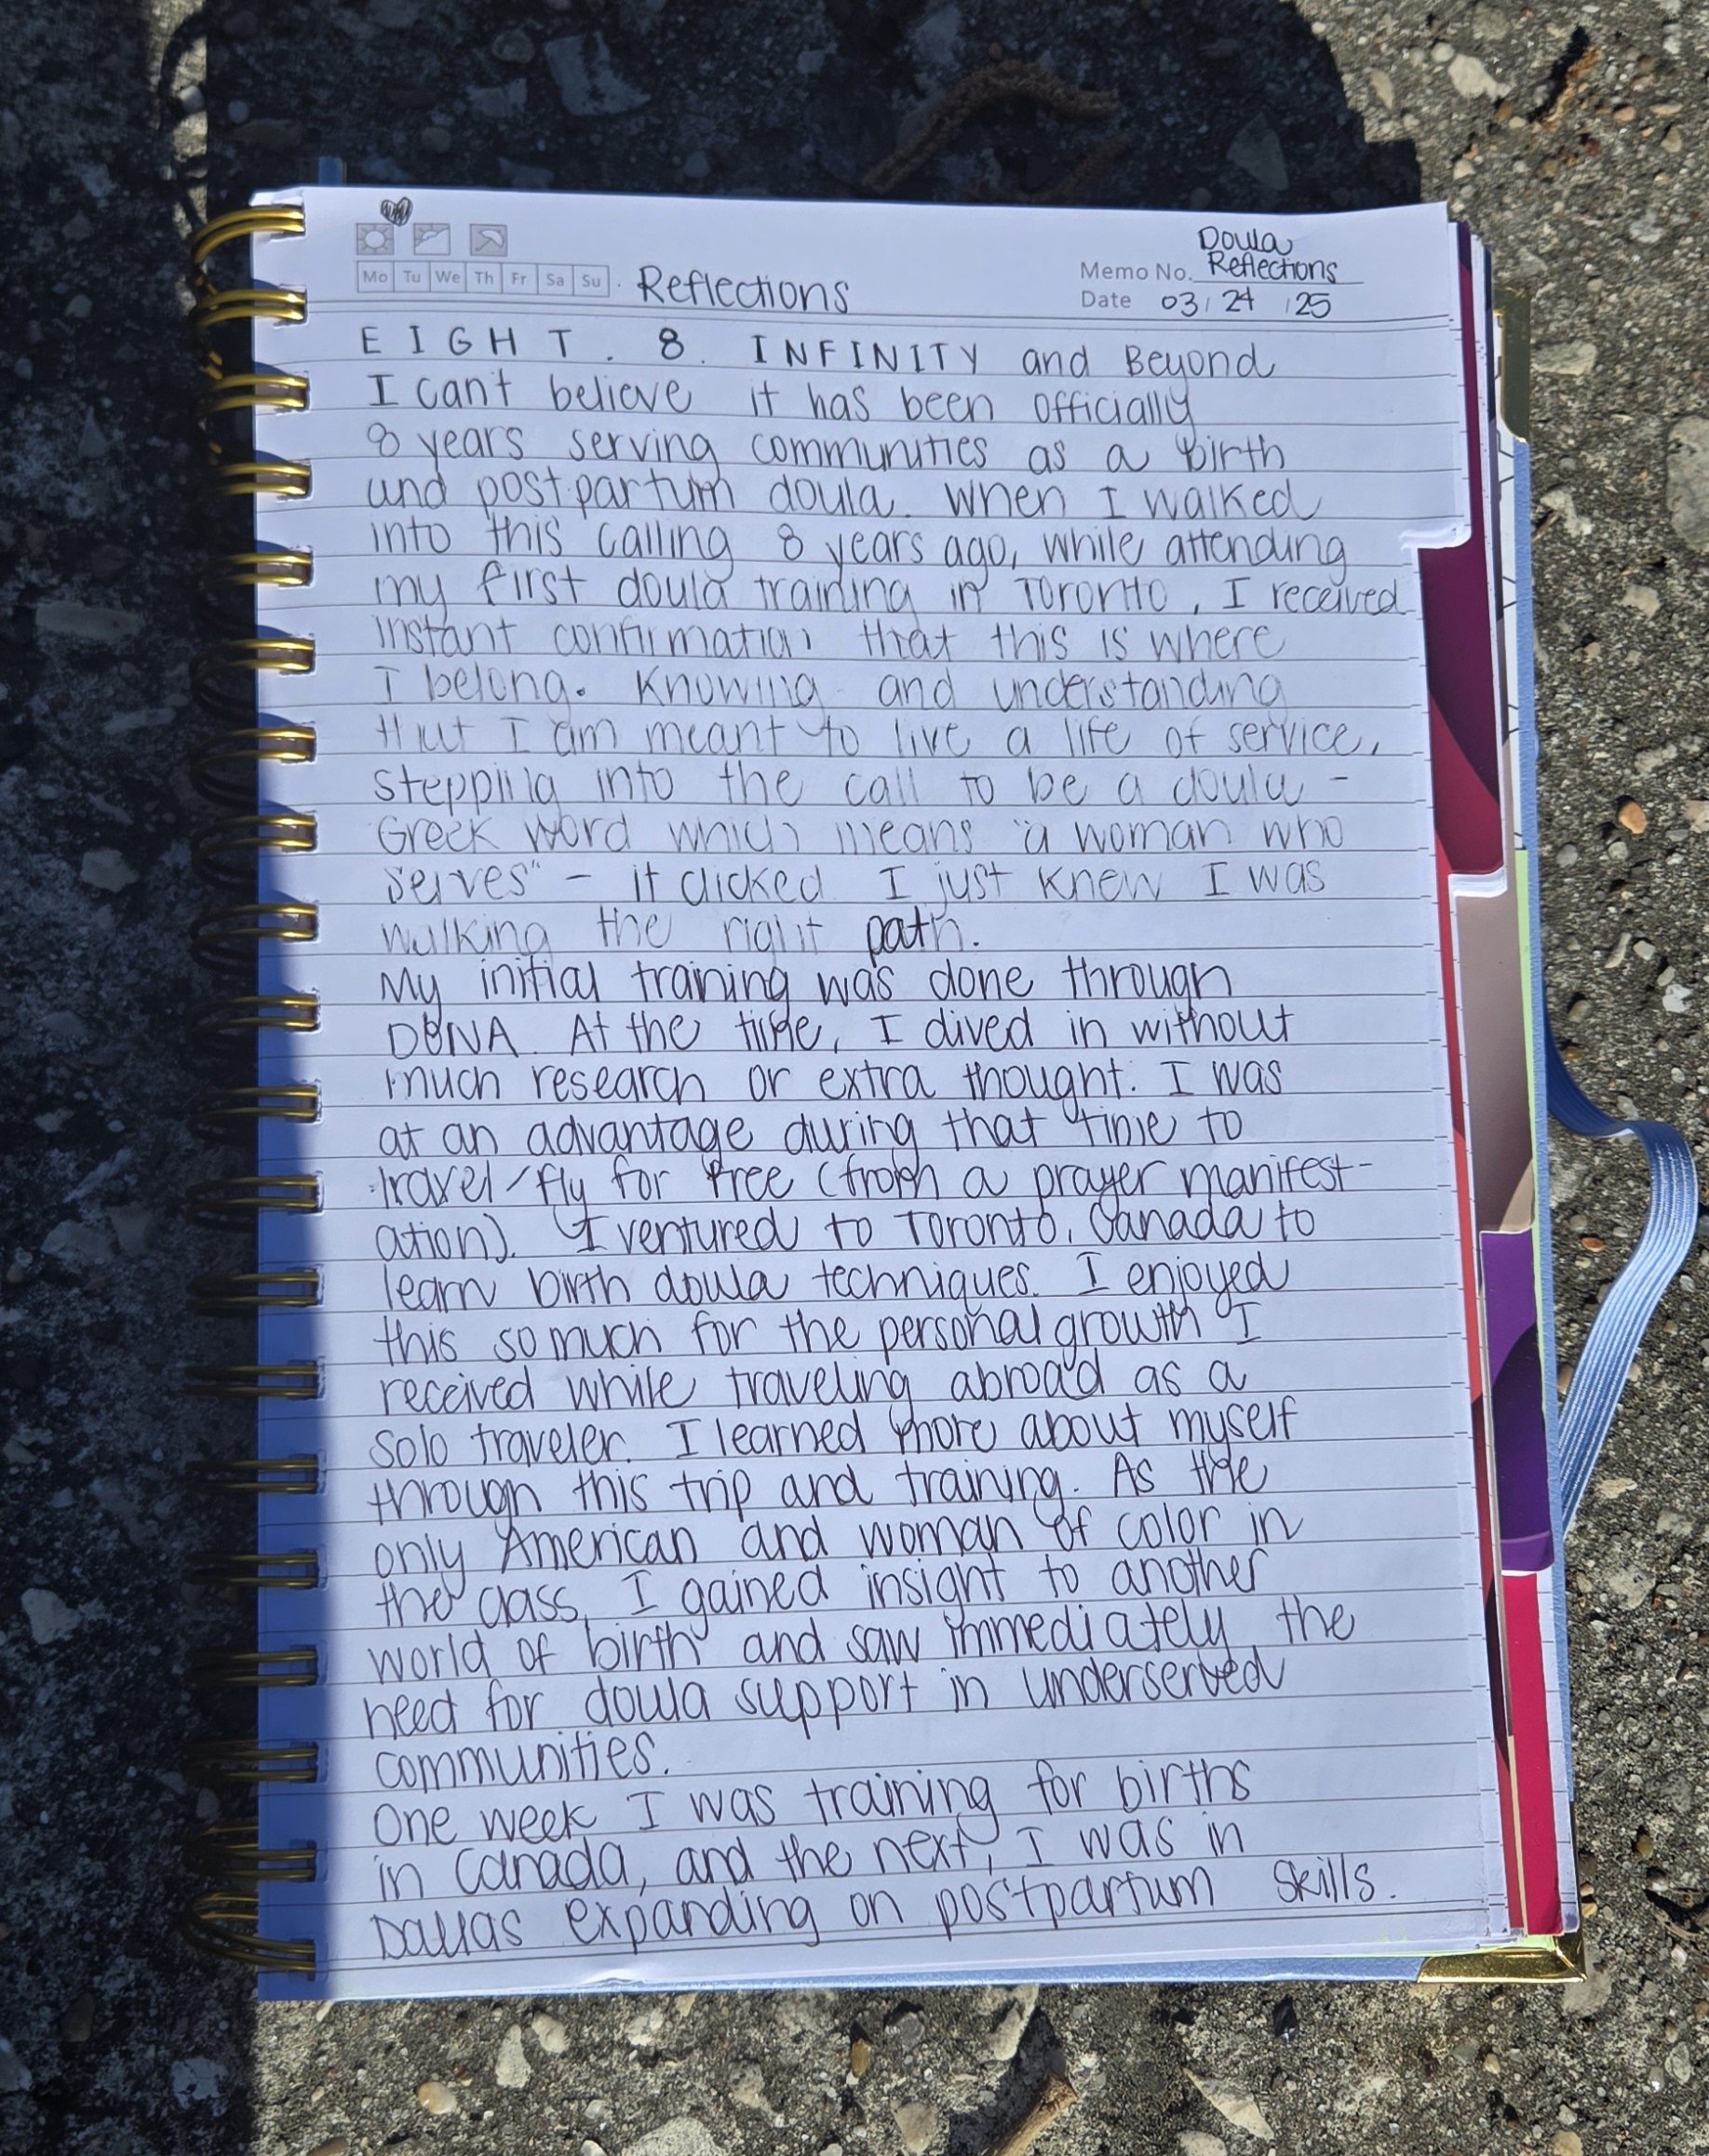 Doula
Memo No. Reflections
Mo Tu We Th Fr Sa Su Reflections
Date 03/24/25
EIGHT. 8. INFINITY and Beyond
I can't believe it has been officially
8 years serving communities as a birth
and postpartum doula. When I walked
into this calling 8 years ago, while attending
my first doula training in Toronto, I received
instant confirmation that this is where
I belong. Knowing and understanding
that I am meant to live a life of service,
stepping into the call to be a doula -
Greek word which means "a woman who
serves" - it clicked. I just knew I was
walking the right path.
My initial training was done through
DONA. At the time, I dived in without
much research or extra thought. I was
at an advantage during that time to
travel/fly for free (from a prayer manifest-
ation). I ventured to Toronto, Canada to
learn birth doula techniques. I enjoyed
this so much for the personal growth I
received while traveling abroad as a
solo traveler. I learned more about myself
through this trip and training. As the
only American and woman of color in
the class, I gained insight to another
world of birth and saw immediately, the
need for doula support in underserved
communities.
One week I was training for births
in Canada, and the next, I was in
Dallas expanding on postpartum skills.